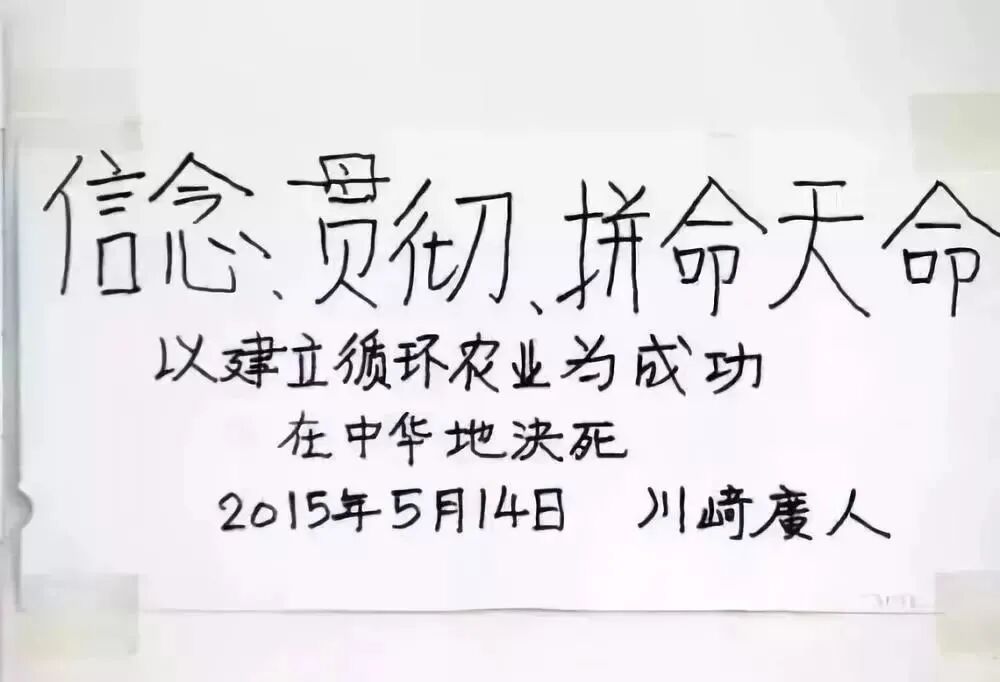 信念、贯彻、拼命天命
以建立循环农业为成功
在中华地決死
2015年5月14日 川﨑廣人